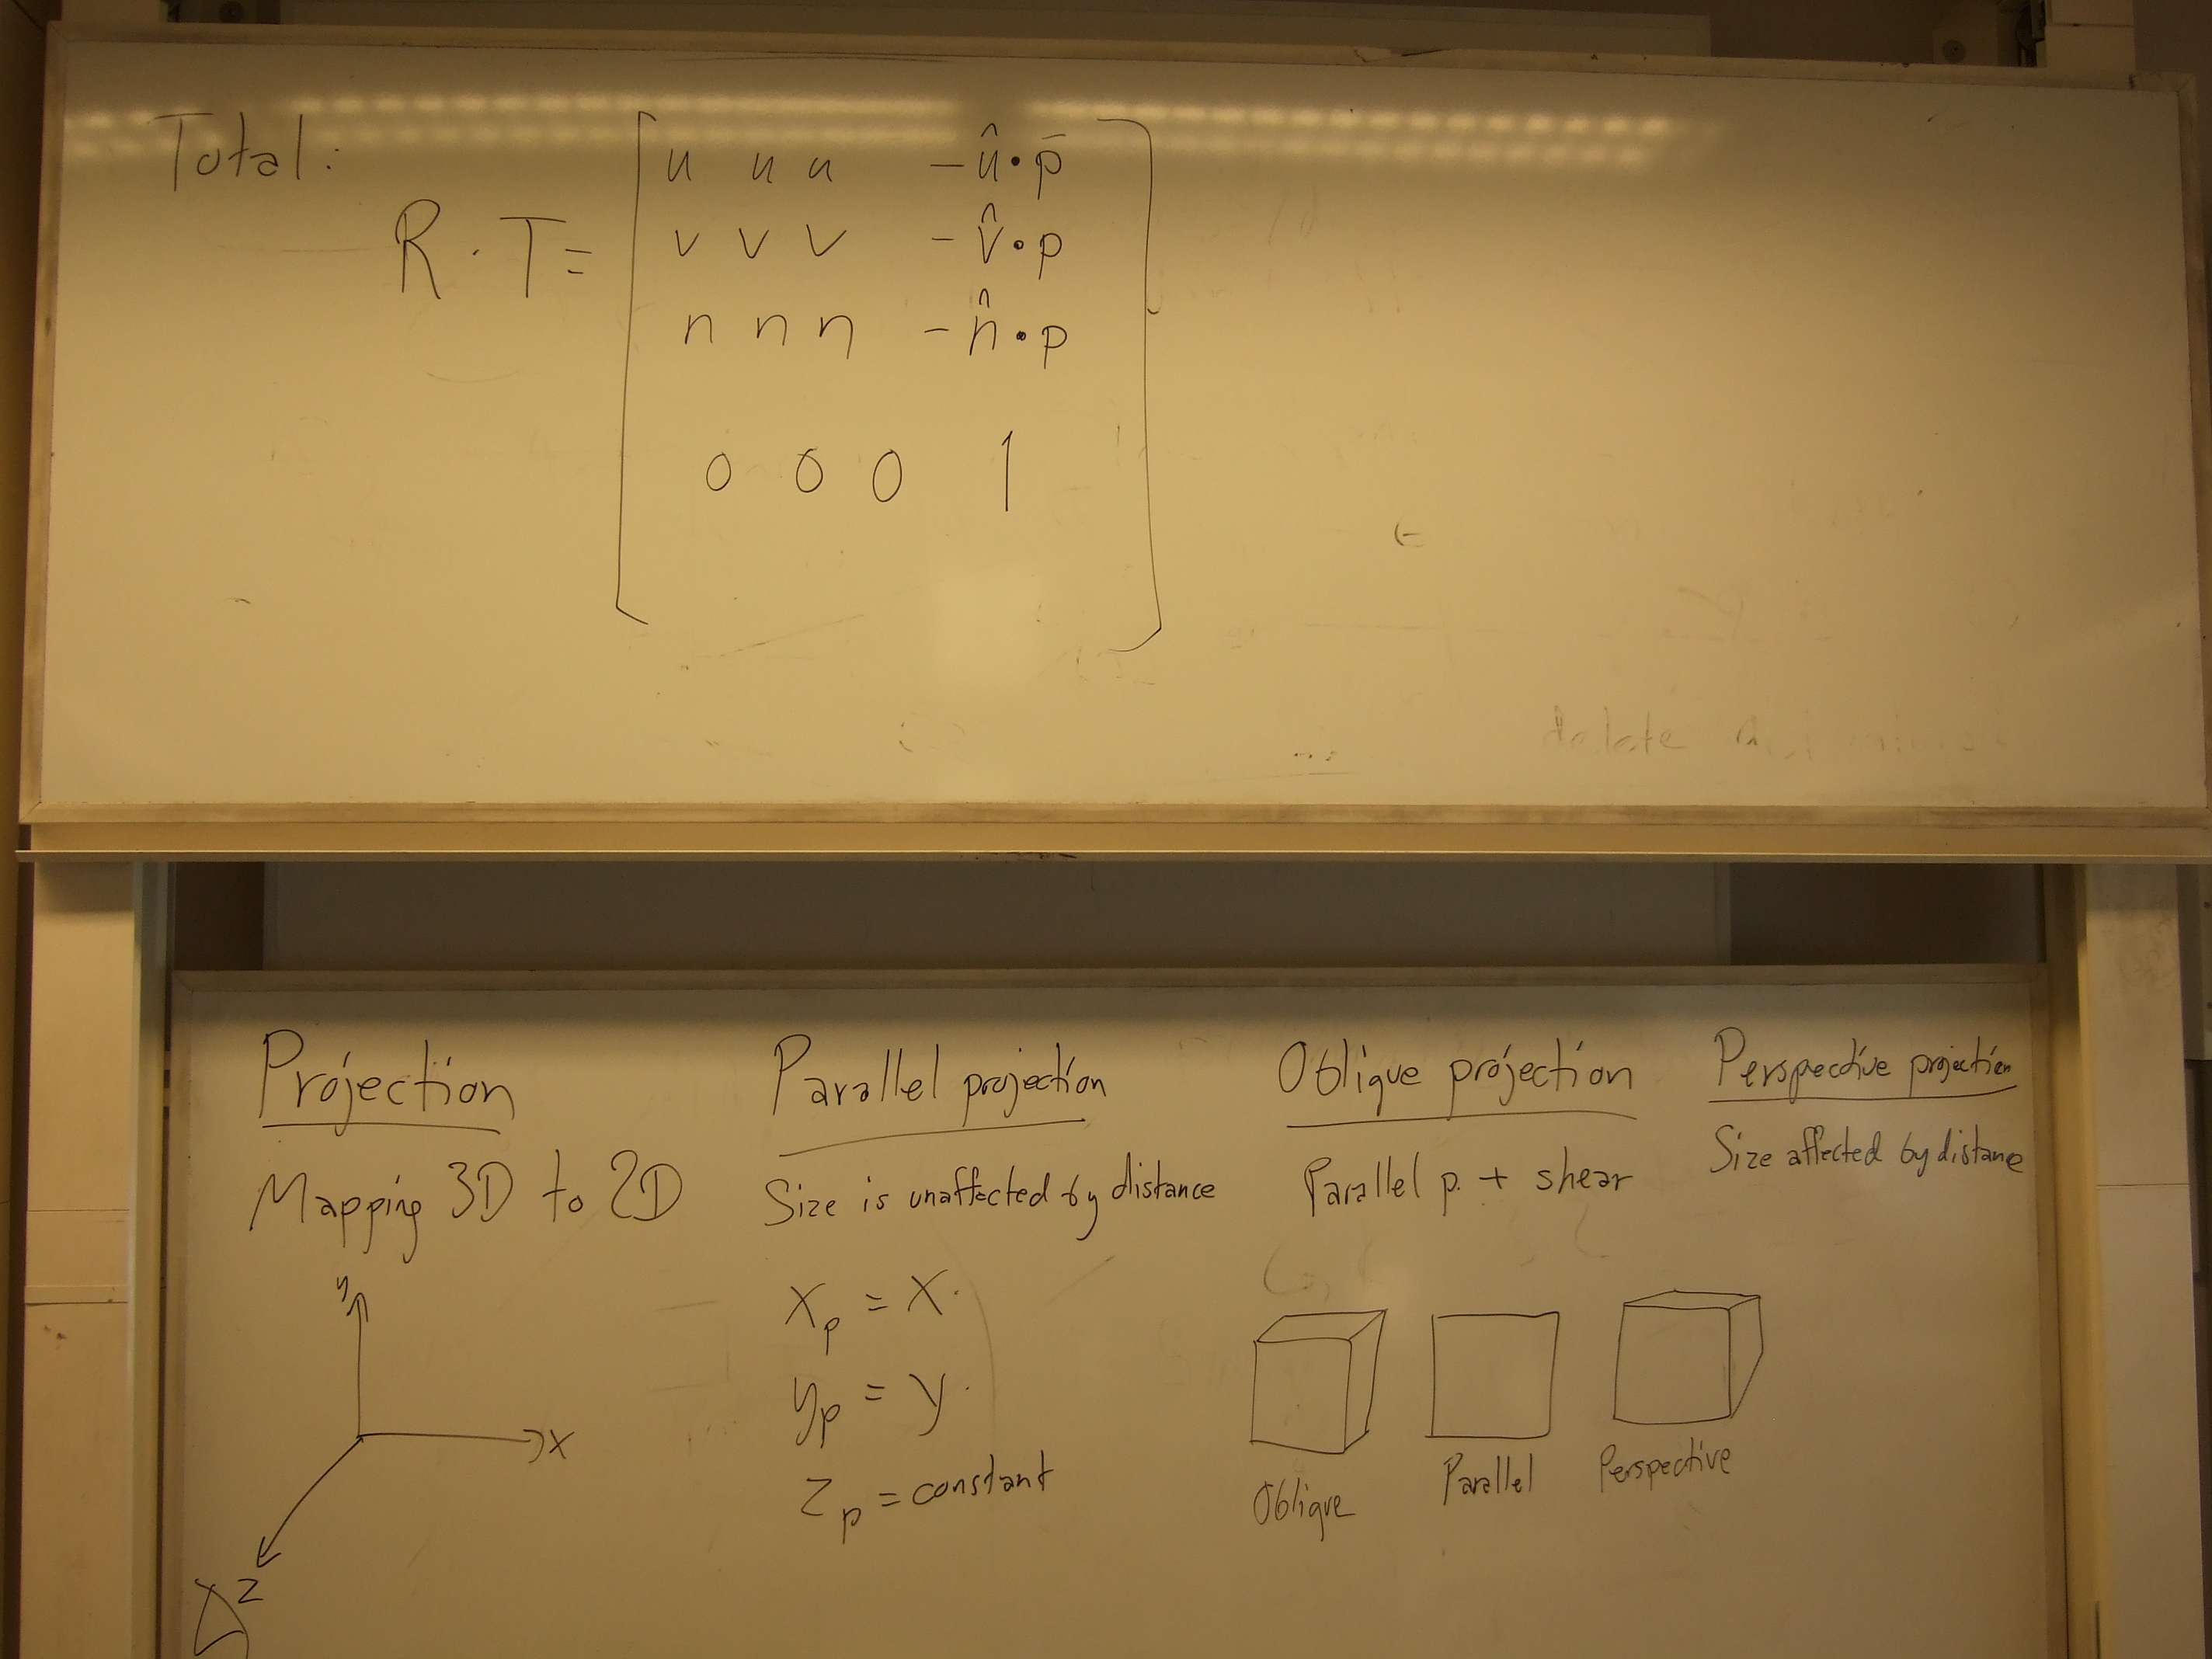 Total:
R · T =
u u u -û • p̄
v v v -v̂ • p
n n n -n̂ • p
0 0 0 1
delete
Projection
Mapping 3D to 2D
y
x
z
Parallel projection
Size is unaffected by distance
xₚ = x
yₚ = y
zₚ = constant
Oblique projection
Parallel p. + shear
Oblique
Parallel
Perspective
Perspective projection
Size affected by distance